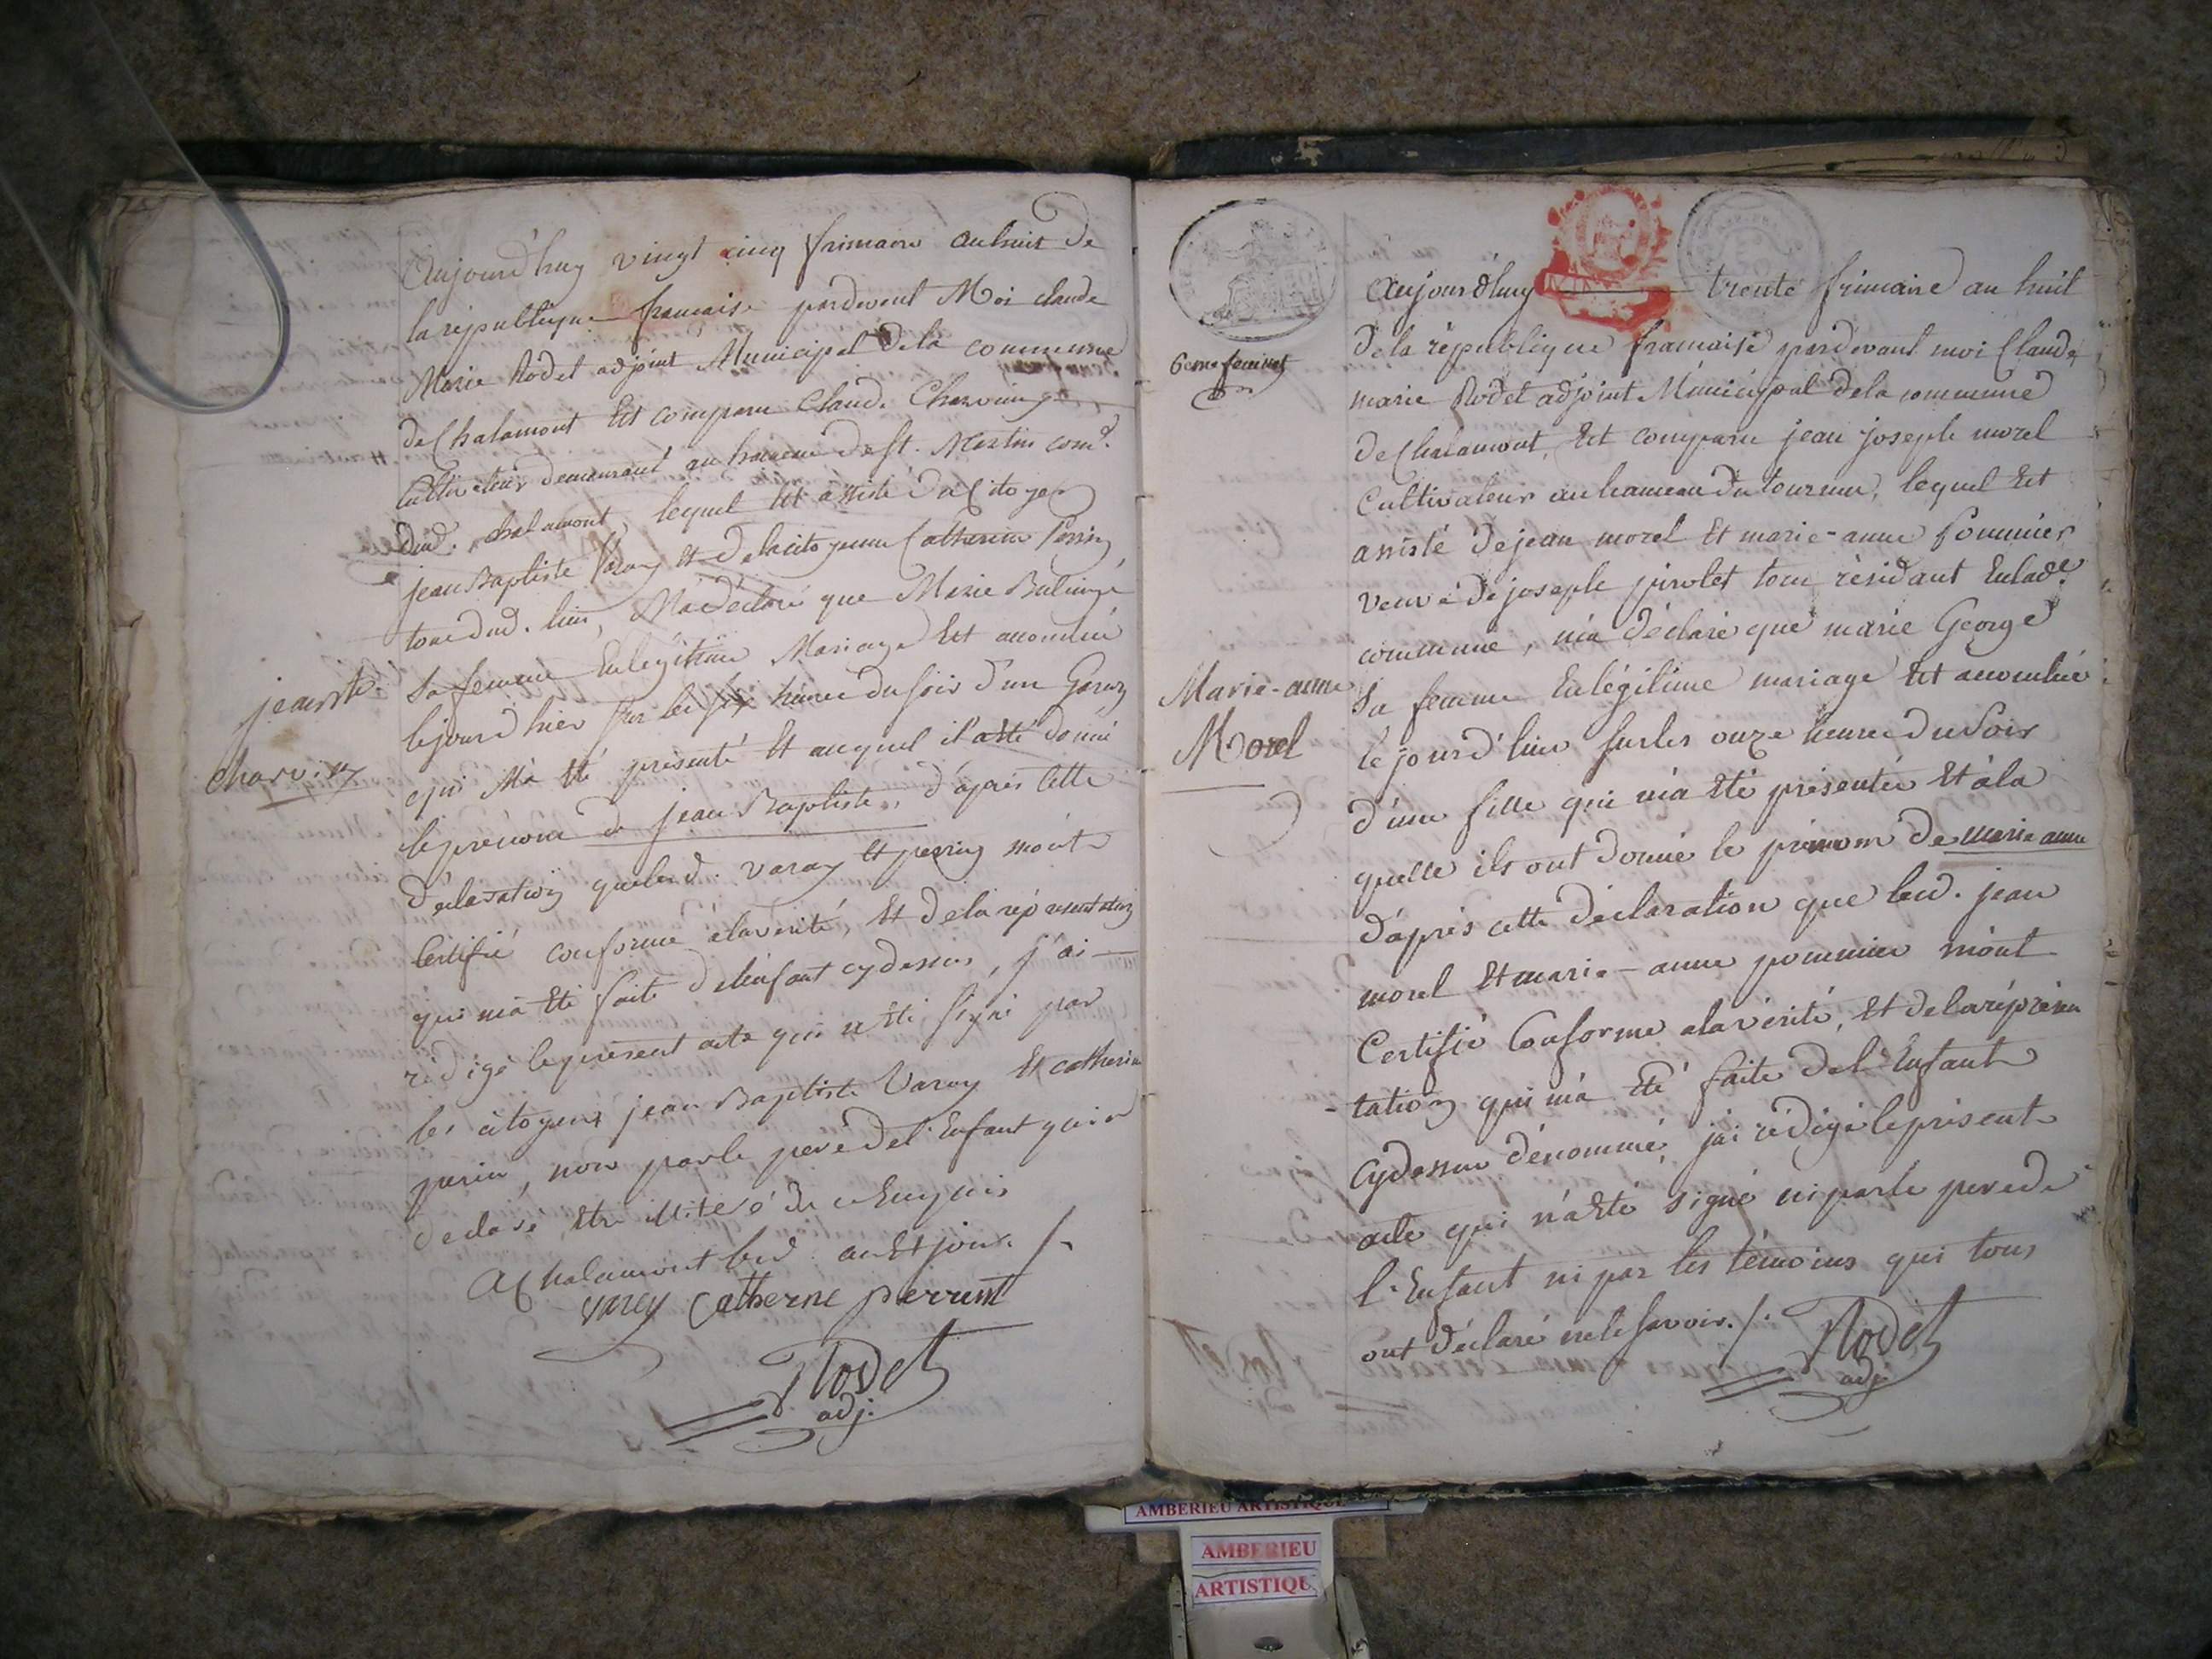 aujourd'huy vingt cinq frimaire an huit de
la republique francaise pardevant Moi claude
Marie Rodet adjoint Municipal de la commune
de Chalamont Est comparu Claude Charvin
Cultivateur demeurant au hameau de St. Martin com.e
dud. chalamont, lequel Est assisté du Citoyen
jean Baptiste Varay Et de la citoyenne Catherine Perrin
tous dud. lieu, M'a déclaré que Marie
jean Bte. Sa femme En légitime Mariage Est accouchée
le jour d'hier sur les six heures du soir d'un Garçon
charvin qui M'a Eté présenté Et auquel il a été donné
le prénom de jean Baptiste, d'après cette
déclaration que lesd. varay Et perrin m'ont
Certifié conforme à la vérité, Et de la représentation
qui m'a Eté faite de l'enfant cydessus, j'ai
rédigé le présent acte qui a Eté signé par
les citoyens jean Baptiste Varay Et catherine
perrin, non par le père de l'Enfant qui a
déclaré Etre illitéré de ce Enquis
A Chalamont lesd. an Et jour. /.
varey catherine perrent
Rodet
adj.
6eme feuillet
aujourd'huy trente frimaire an huit
de la république francaise pardevant moi Claude
marie Rodet adjoint Municipal de la commune
de Chalamont, Est comparu jean joseph morel
Cultivateur au hameau du tourneur, lequel Est
assisté de jean morel Et marie-anne Pommier
veuve de joseph pirolet tous résidant En lade.
commune, m'a déclaré que marie George
Marie-anne Sa femme En légitime mariage Est accouchée
Morel le jour d'hier sur les onze heures du Soir
d'une fille qui m'a Eté présentée Et à la
quelle ils ont donné le prénom de marie anne
d'après cette déclaration que lesd. jean
morel Et marie-anne pommier m'ont
Certifié Conforme a la vérité, Et de la réprésen
-tation qui m'a Eté faite de l'Enfant
Cydessus dénommé, j'ai rédigé le présent
acte qui n'a Eté signé ni par le pere de
l'Enfant ni par les témoins qui tous
ont déclaré ne le savoir. /.
Rodet
adj.
AMBERIEU ARTISTIQUE
AMBERIEU
ARTISTIQU